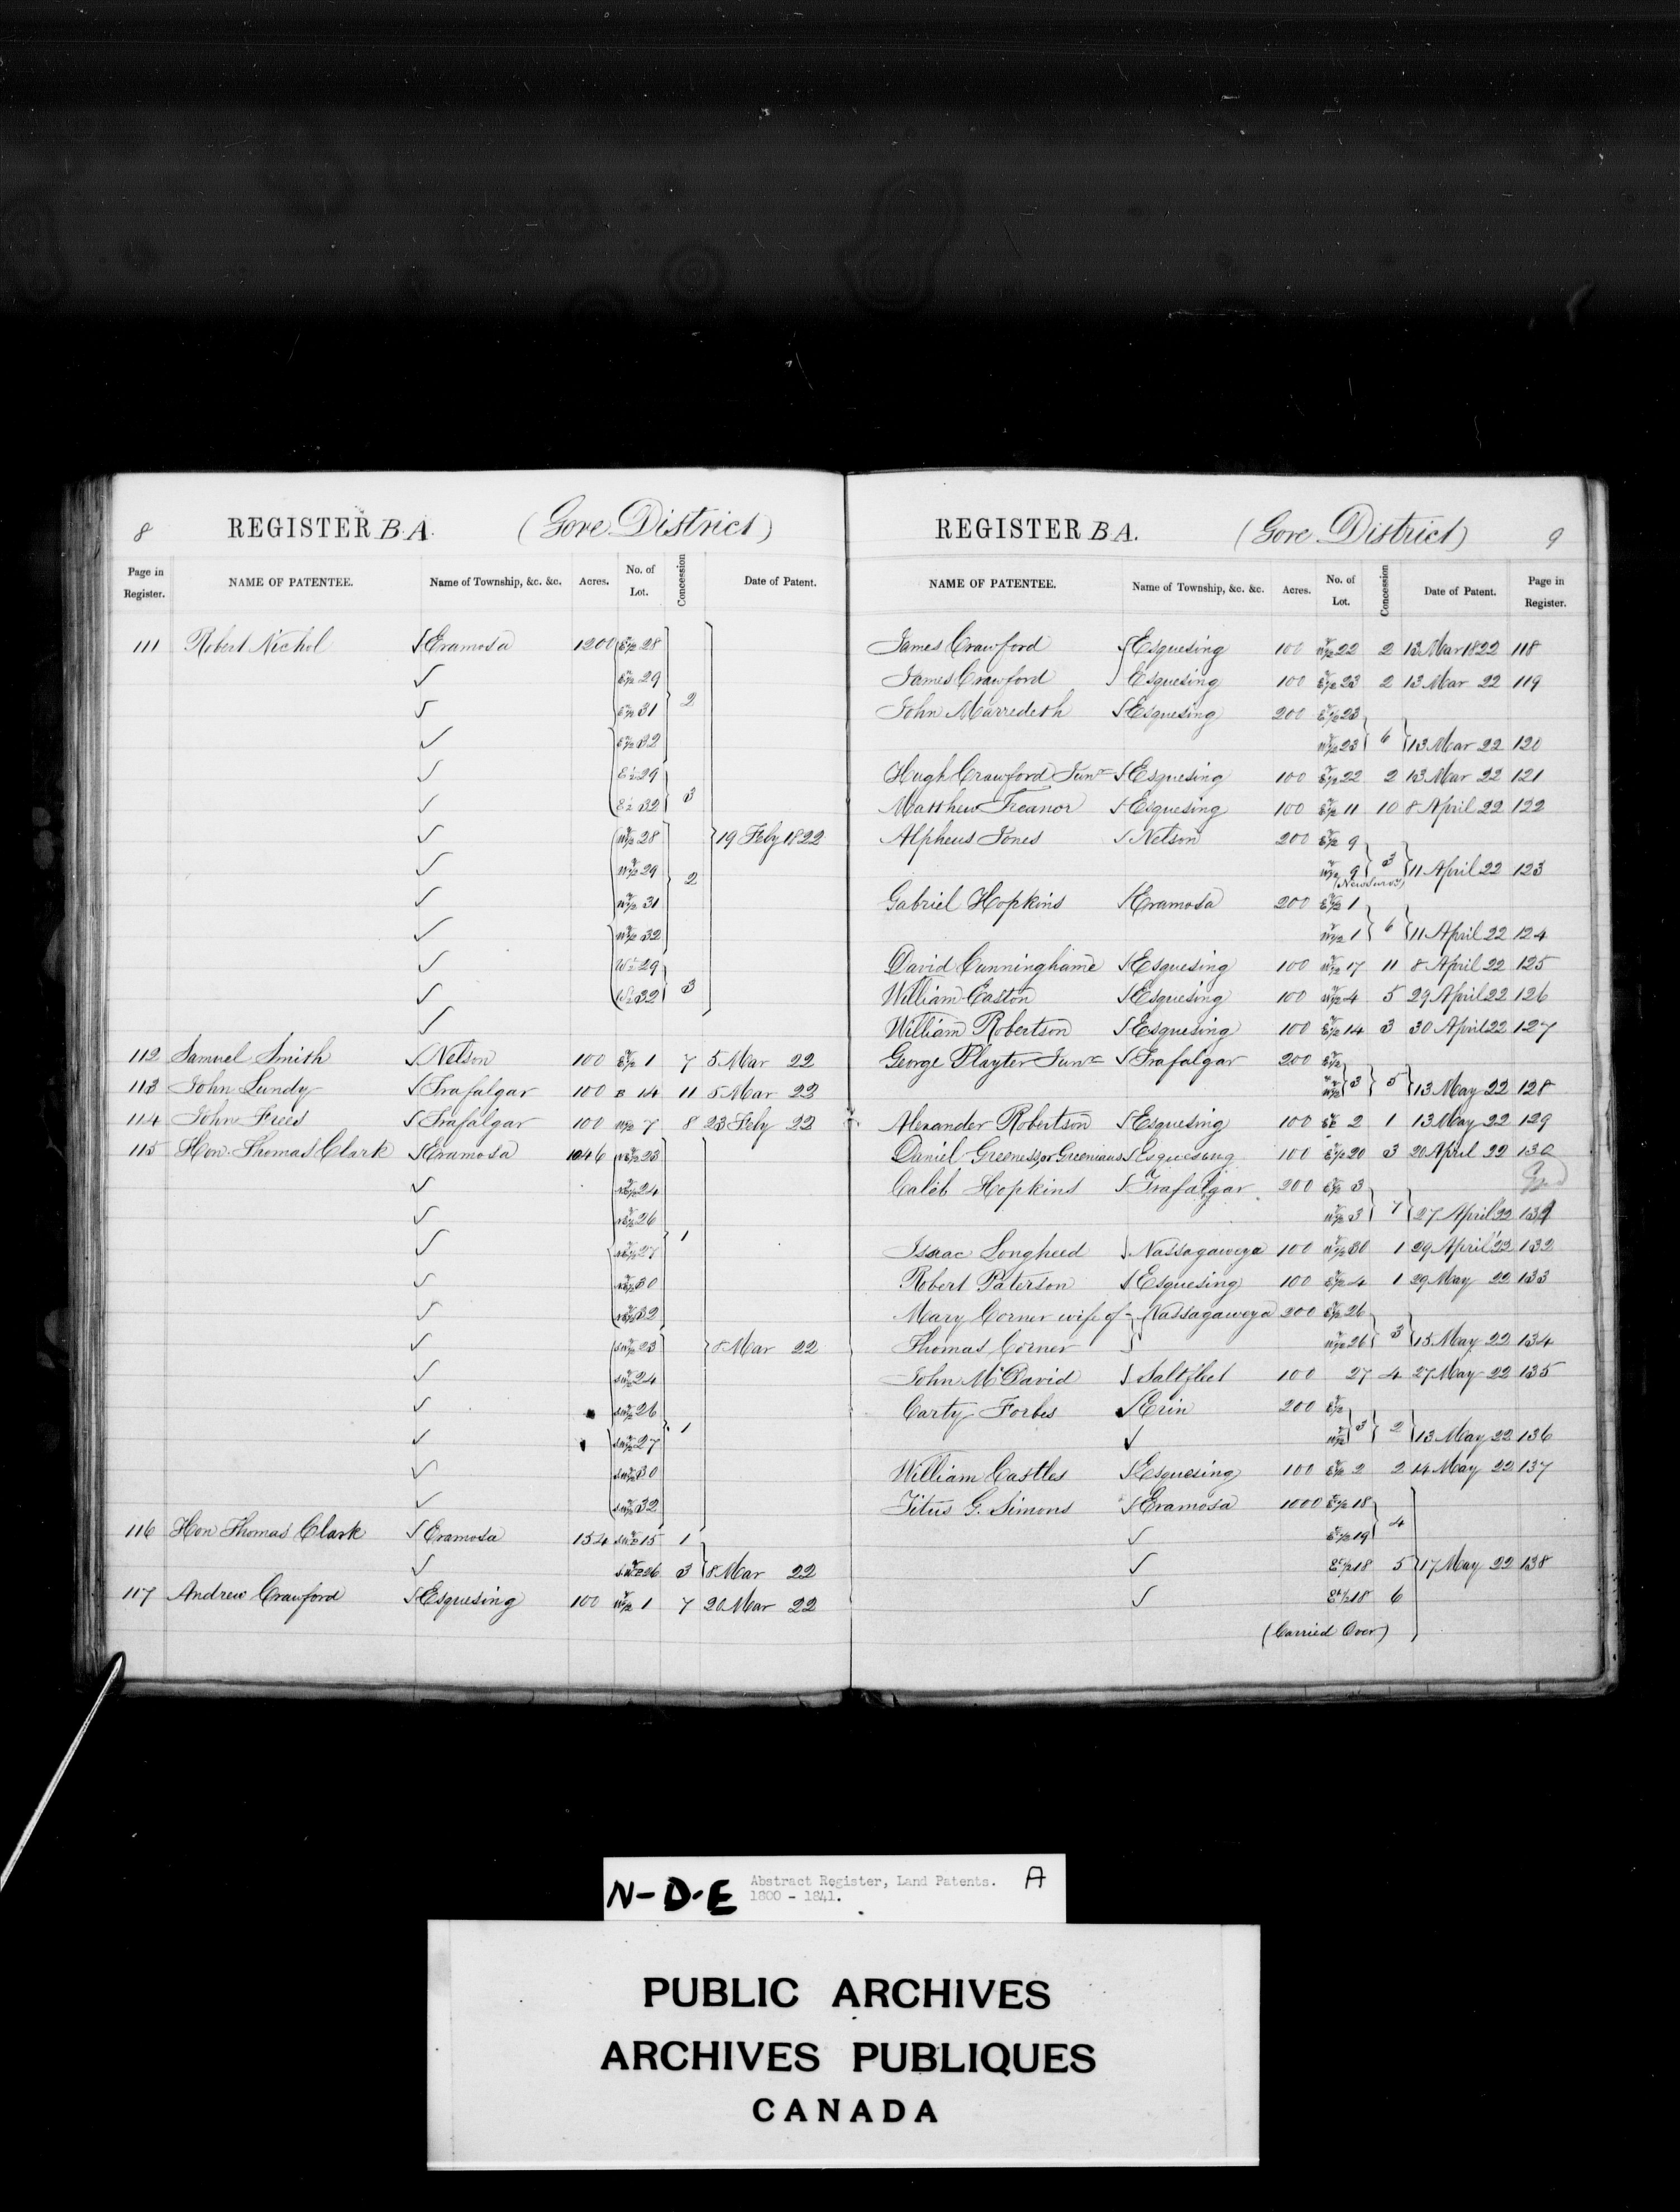 8 REGISTER B.A. (Gore District)
Page in Register. NAME OF PATENTEE. Name of Township, &c. &c. Acres. No. of Lot. Concession Date of Patent.
111 Robert Nichol Eramosa 1200 E½ 28
E½ 29
E½ 31 2
E½ 32
E½ 29
E½ 32 3
W½ 28 19 Feby 1822
W½ 29
W½ 31 2
W½ 32
W½ 29
W½ 32 3
112 Samuel Smith Nelson 100 E½ 1 7 5 Mar 22
113 John Lundy Trafalgar 100 B 14 11 5 Mar 22
114 John Frees Trafalgar 100 W½ 7 8 23 Feby 22
115 Hon. Thomas Clark Eramosa 1046 NE½ 23
NE½ 24
NE½ 26
NE½ 27 1
NE½ 30
NE½ 32
SW½ 23 8 Mar 22
SW½ 24
SW½ 26
SW½ 27 1
SW½ 30
SW½ 32
116 Hon Thomas Clark Eramosa 154 15 1
26 3 8 Mar 22
117 Andrew Crawford Esquesing 100 W½ 1 7 20 Mar 22
REGISTER B A. (Gore District) 9
NAME OF PATENTEE. Name of Township, &c. &c. Acres. No. of Lot. Concession Date of Patent. Page in Register.
James Crawford Esquesing 100 W½ 22 2 13 Mar 1822 118
James Crawford Esquesing 100 E½ 23 2 13 Mar 22 119
John Marredeth Esquesing 200 E½ 23
W½ 23 6 13 Mar 22 120
Hugh Crawford Junr Esquesing 100 E½ 22 2 13 Mar 22 121
Matthew Treanor Esquesing 100 E½ 11 10 8 April 22 122
Alpheus Jones Nelson 200 E½ 9
W½ 9 3 11 April 22 123
(New Survey)
Gabriel Hopkins Eramosa 200 E½ 1
W½ 1 6 11 April 22 124
David Cunninghame Esquesing 100 W½ 17 11 8 April 22 125
William Easton Esquesing 100 W½ 4 5 29 April 22 126
William Robertson Esquesing 100 E½ 14 3 30 April 22 127
George Playter Junr Trafalgar 200 E½
W½ 3 5 13 May 22 128
Alexander Robertson Esquesing 100 2 1 13 May 22 129
Daniel Greeness or Greenians Esquesing 100 E½ 20 3 20 April 22 130
Caleb Hopkins Trafalgar 200 E½ 3
W½ 3 7 27 April 22 131
Isaac Longheed Nassagaweya 100 W½ 30 1 29 April 22 132
Robert Paterson Esquesing 100 E½ 4 1 29 May 22 133
Mary Corner wife of Nassagaweya 200 E½ 26
Thomas Corner W½ 26 3 15 May 22 134
John McDavid Saltfleet 100 27 4 27 May 22 135
Carty Forbes Erin 200 E½
W½ 3 2 13 May 22 136
William Castles Esquesing 100 E½ 2 2 14 May 22 137
Titus G. Simons Eramosa 1000 E½ 18
E½ 19 4
E½ 18 5 17 May 22 138
E½ 18 6
(Carried Over)
N-D-E Abstract Register, Land Patents. A
1800 - 1841.
PUBLIC ARCHIVES
ARCHIVES PUBLIQUES
CANADA